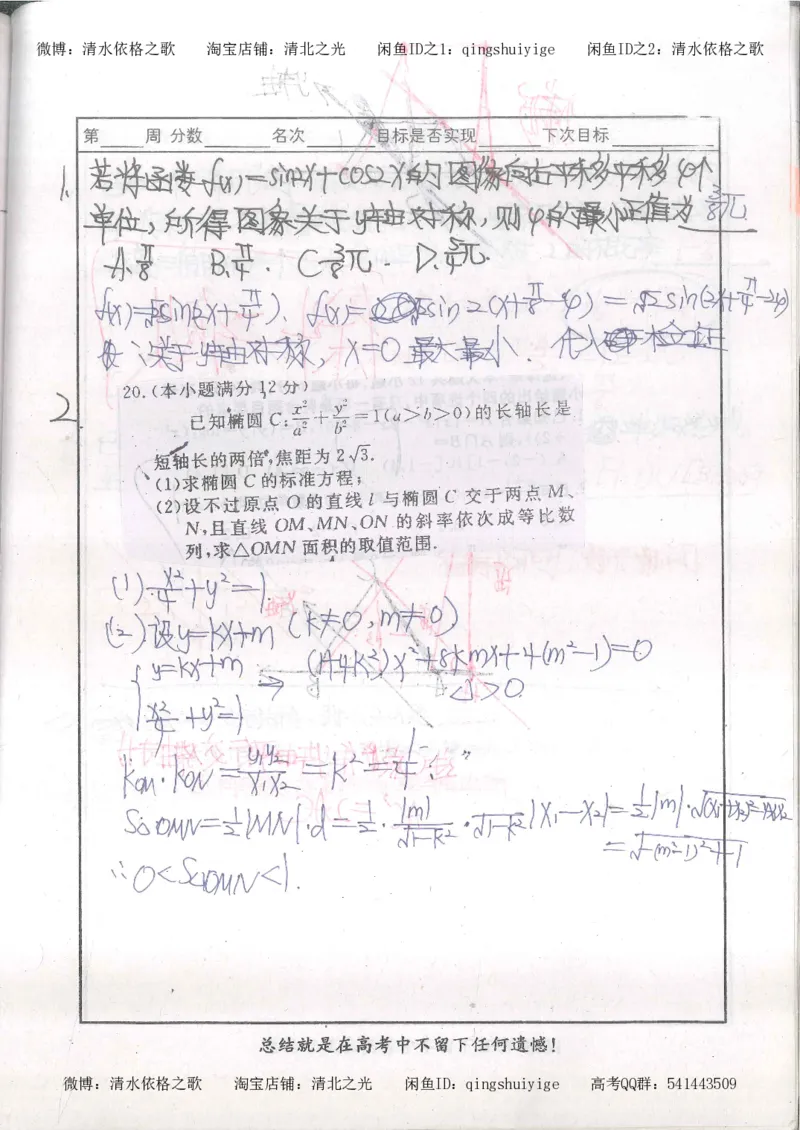 微博：清水依格之歌 淘宝店铺：清北之光 闲鱼ID之1：qingshuiyige 闲鱼ID之2：清水依格之歌
第____周 分数______ 名次______ 目标是否实现______ 下次目标______
1. 若将函数f(x)=sin2x+cos2x的图像向右平移平移φ个
单位，所得图象关于y轴对称，则φ的最小正值为 3/8π
A.π/8 B.π/4. C.3/8π. D.5/4π.
f(x)=√2sin(2x+π/4)、f(x)=√2sin2(x+π/8-φ)=√2sin(2x+π/4-2φ)
∵关于y轴对称，x=0最大最小．代入
2
20.(本小题满分12分)
已知椭圆C:x²/a²+y²/b²=1(a>b>0)的长轴长是
短轴长的两倍,焦距为2√3.
(1)求椭圆C的标准方程;
(2)设不过原点O的直线l与椭圆C交于两点M、
N,且直线OM、MN、ON的斜率依次成等比数
列,求△OMN面积的取值范围.
(1).x²/4+y²=1.
(2)设y=kx+m (k≠0,m≠0)
{y=kx+m ⇒ (1+4k²)x²+8kmx+4(m²-1)=0
x²/4+y²=1 △>0
kOM·kON=y₁y₂/x₁x₂=k²=1/4.
S△OMN=1/2|MN|·d=1/2·|m|/√1-k²·√1-k²|x₁-x₂|=1/2|m|·√(x₁+x₂)²-4x₁x₂
=√-(m²-1)²+1
∴0<S△OMN<1.
总结就是在高考中不留下任何遗憾!
微博：清水依格之歌 淘宝店铺：清北之光 闲鱼ID：qingshuiyige 高考QQ群：541443509